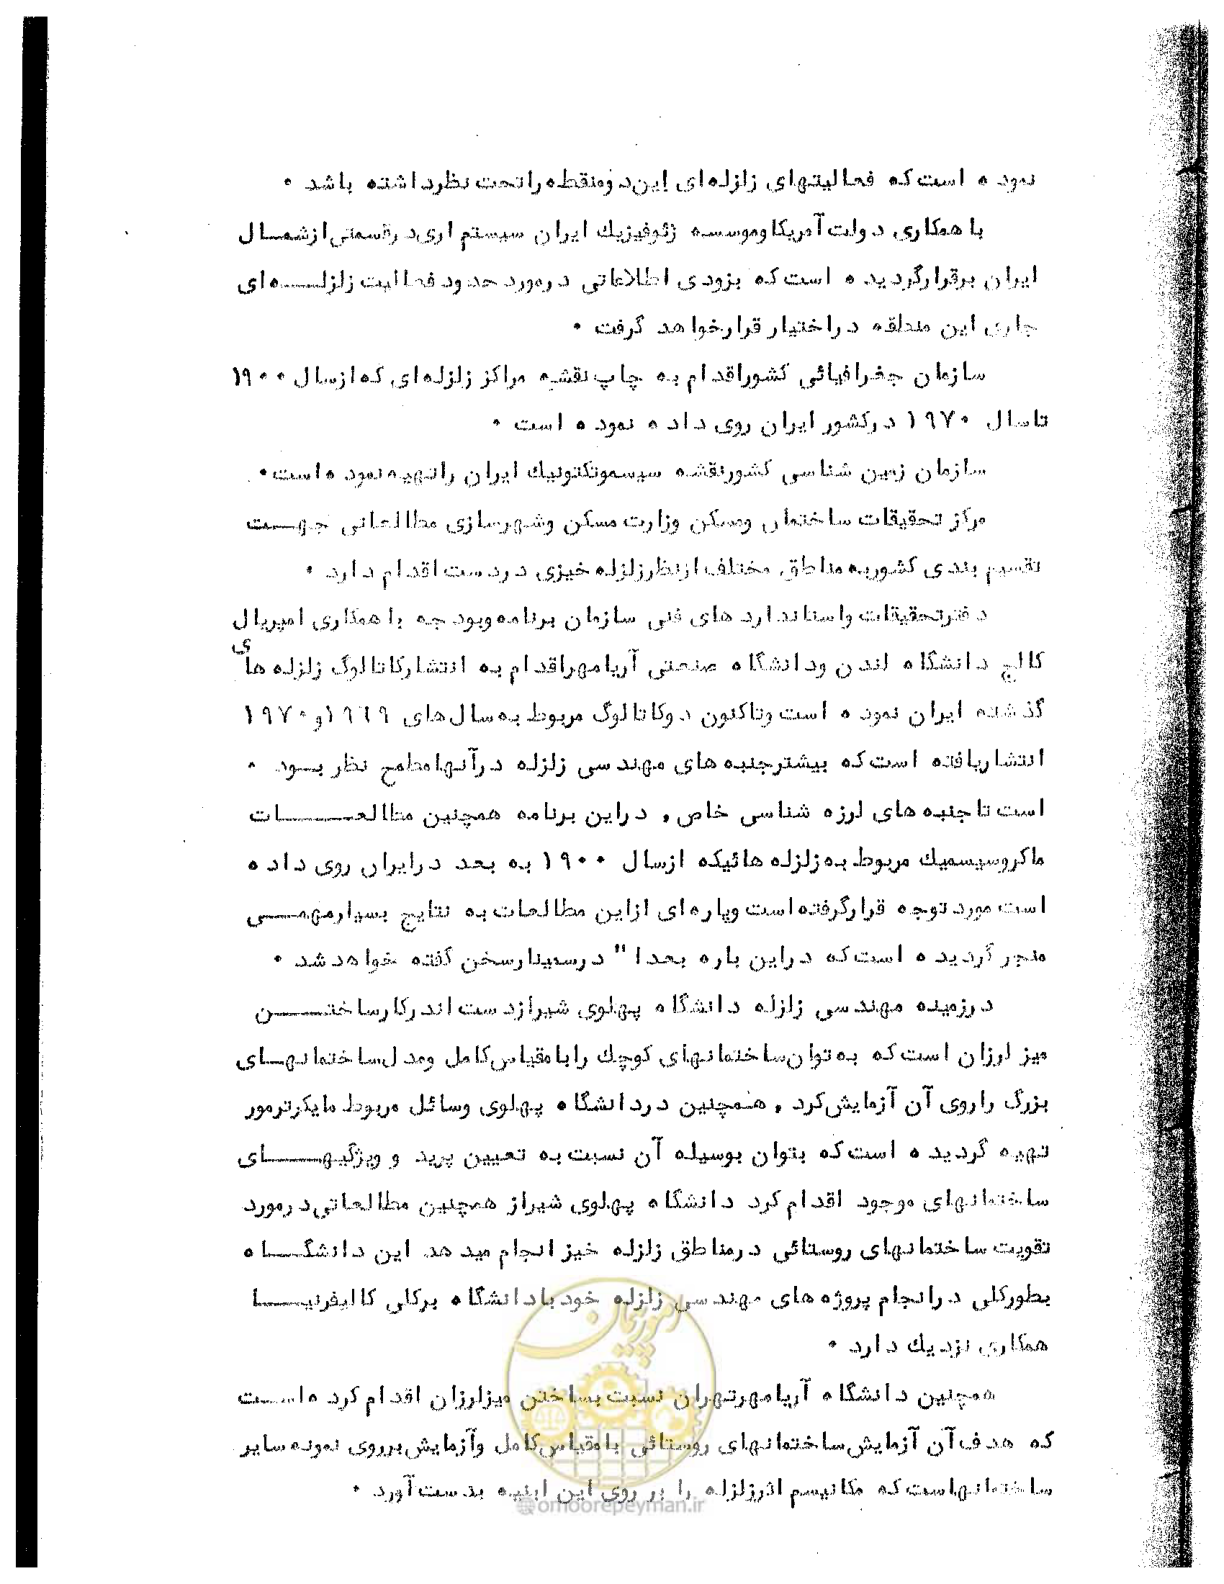 نموده است که فعالیتهای زلزله‌ای این دو منقطه را تحت نظر داشته باشد .
با همکاری دولت آمریکا و موسسه ژئوفیزیك ایران سیستم اری در قسمتی از شمال
ایران برقرار گردیده است که بزودی اطلاعاتی در مورد حدود فعالیت زلزله‌ای
جاری این منطقه در اختیار قرار خواهد گرفت .
سازمان جغرافیائی کشور اقدام به چاپ نقشه مراکز زلزله‌ای که از سال ۱۹۰۰
تا سال ۱۹۷۰ در کشور ایران روی داده نموده است .
سازمان زمین شناسی کشور نقشه سیسموتکتونیك ایران را تهیه نموده است .
مرکز تحقیقات ساختمان و مسکن وزارت مسکن و شهرسازی مطالعاتی جهت
تقسیم بندی کشور به مناطق مختلف از نظر زلزله خیزی در دست اقدام دارد .
دفتر تحقیقات و استاندارد های فنی سازمان برنامه و بودجه با همکاری امپریال
کالج دانشگاه لندن و دانشگاه صنعتی آریامهر اقدام به انتشار کاتالوگ زلزله های
گذشته ایران نموده است و تاکنون دو کاتالوگ مربوط به سال های ۱۹۶۹ و ۱۹۷۰
انتشار یافته است که بیشتر جنبه های مهندسی زلزله در آنها مطمح نظر بود .
است تا جنبه های لرزه شناسی خاص , در این برنامه همچنین مطالعات
ماکروسیسمیك مربوط به زلزله هائیکه از سال ۱۹۰۰ به بعد در ایران روی داده
است مورد توجه قرار گرفته است و پاره‌ای از این مطالعات به نتایج بسیار مهمی
منجر گردیده است که در این باره بعدا" در سمینار سخن گفته خواهد شد .
در زمینه مهندسی زلزله دانشگاه پهلوی شیراز دست اندر کار ساختن
میز لرزان است که به توان ساختمانهای کوچك را با مقیاس کامل و مدل ساختمانهای
بزرگ را روی آن آزمایش کرد , همچنین در دانشگاه پهلوی وسائل مربوط مایکرترمور
تهیه گردیده است که بتوان بوسیله آن نسبت به تعیین پرید و ویژگیهای
ساختمانهای موجود اقدام کرد دانشگاه پهلوی شیراز همچنین مطالعاتی در مورد
تقویت ساختمانهای روستائی در مناطق زلزله خیز انجام میدهد این دانشگاه
بطور کلی در انجام پروژه های مهندسی زلزله خود با دانشگاه برکلی کالیفرنیا
همکاری نزدیك دارد .
همچنین دانشگاه آریامهر تهران نسبت بساختن میز لرزان اقدام کرده است
که هدف آن آزمایش ساختمانهای روستائی با مقیاس کامل و آزمایش بر روی نمونه سایر
ساختمانهاست که مکانیسم اثر زلزله را بر روی این ابنیه بدست آورد .
امور پیمان
@omoorepeyman.ir